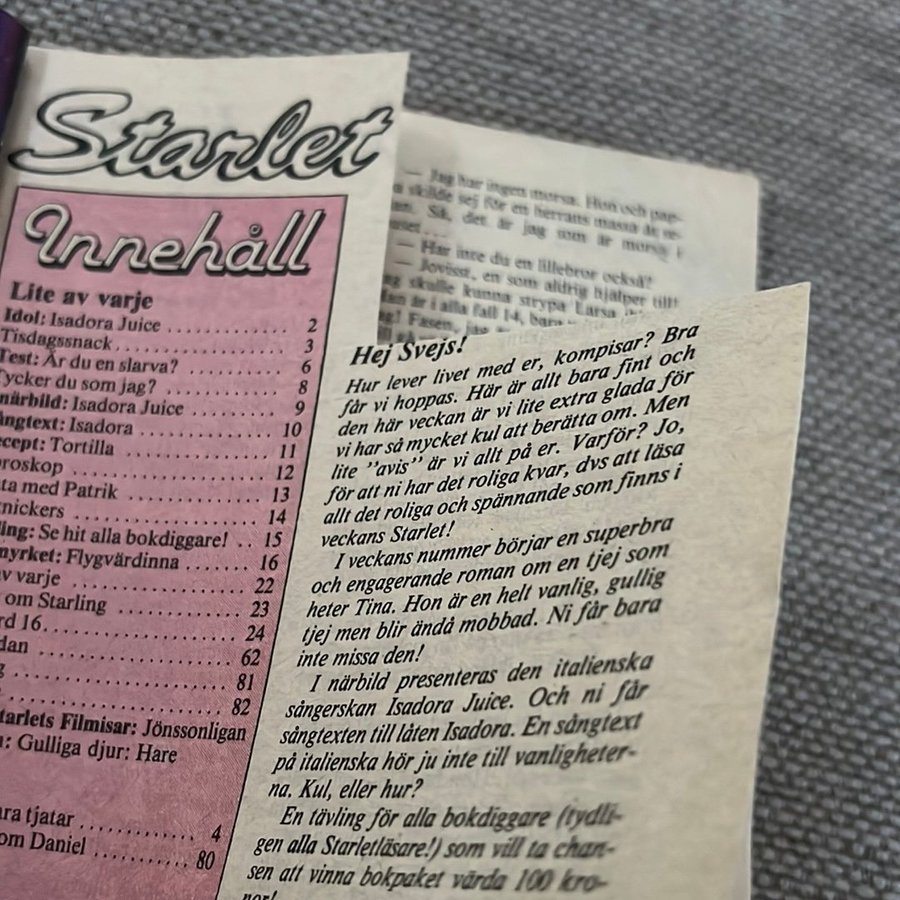 Starlet
Innehåll
Lite av varje
Idol: Isadora Juice ............... 2
Tisdagssnack ............... 3
Test: Är du en slarva? ............... 6
Tycker du som jag? ............... 8
närbild: Isadora Juice ............... 9
ångtext: Isadora ............... 10
ecept: Tortilla ............... 11
roskop ............... 12
ta med Patrik ............... 13
nickers ............... 14
ling: Se hit alla bokdiggare! .. 15
myrket: Flygvärdinna ............... 16
av varje ............... 22
om Starling ............... 23
rd 16 ............... 24
dan ............... 62
g ............... 81
............... 82
tarlets Filmisar: Jönssonligan
: Gulliga djur: Hare
ara tjatar ............... 4
om Daniel ............... 80
— Jag har ingen morsa. Hon och pap-
skilde sej för en herrans massa år se-
an. Så, det är jag som är morsa i
— Har inre du en lillebror också?
— Jovisst, en som aldrig hjälper till!
ag skulle kunna strypa Larsa
an är i alla fall 14, bara
g! Fasen, jag
Hej Svejs!
Hur lever livet med er, kompisar? Bra
får vi hoppas. Här är allt bara fint och
den här veckan är vi lite extra glada för
vi har så mycket kul att berätta om. Men
lite ”avis” är vi allt på er. Varför? Jo,
för att ni har det roliga kvar, dvs att läsa
allt det roliga och spännande som finns i
veckans Starlet!
I veckans nummer börjar en superbra
och engagerande roman om en tjej som
heter Tina. Hon är en helt vanlig, gullig
tjej men blir ändå mobbad. Ni får bara
inte missa den!
I närbild presenteras den italienska
sångerskan Isadora Juice. Och ni får
sångtexten till låten Isadora. En sångtext
på italienska hör ju inte till vanligheter-
na. Kul, eller hur?
En tävling för alla bokdiggare (tydli-
gen alla Starletläsare!) som vill ta chan-
sen att vinna bokpaket värda 100 kro-
nor!